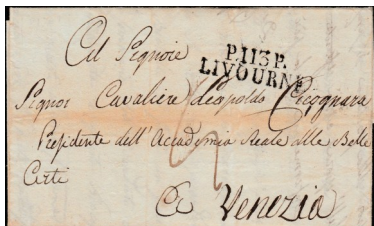 Al Signore
P.113.P.
LIVOURNE
Signor Cavaliere Leopoldo Cicognara
Presidente dell'Accademia Reale delle Belle
Arti
A Venezia